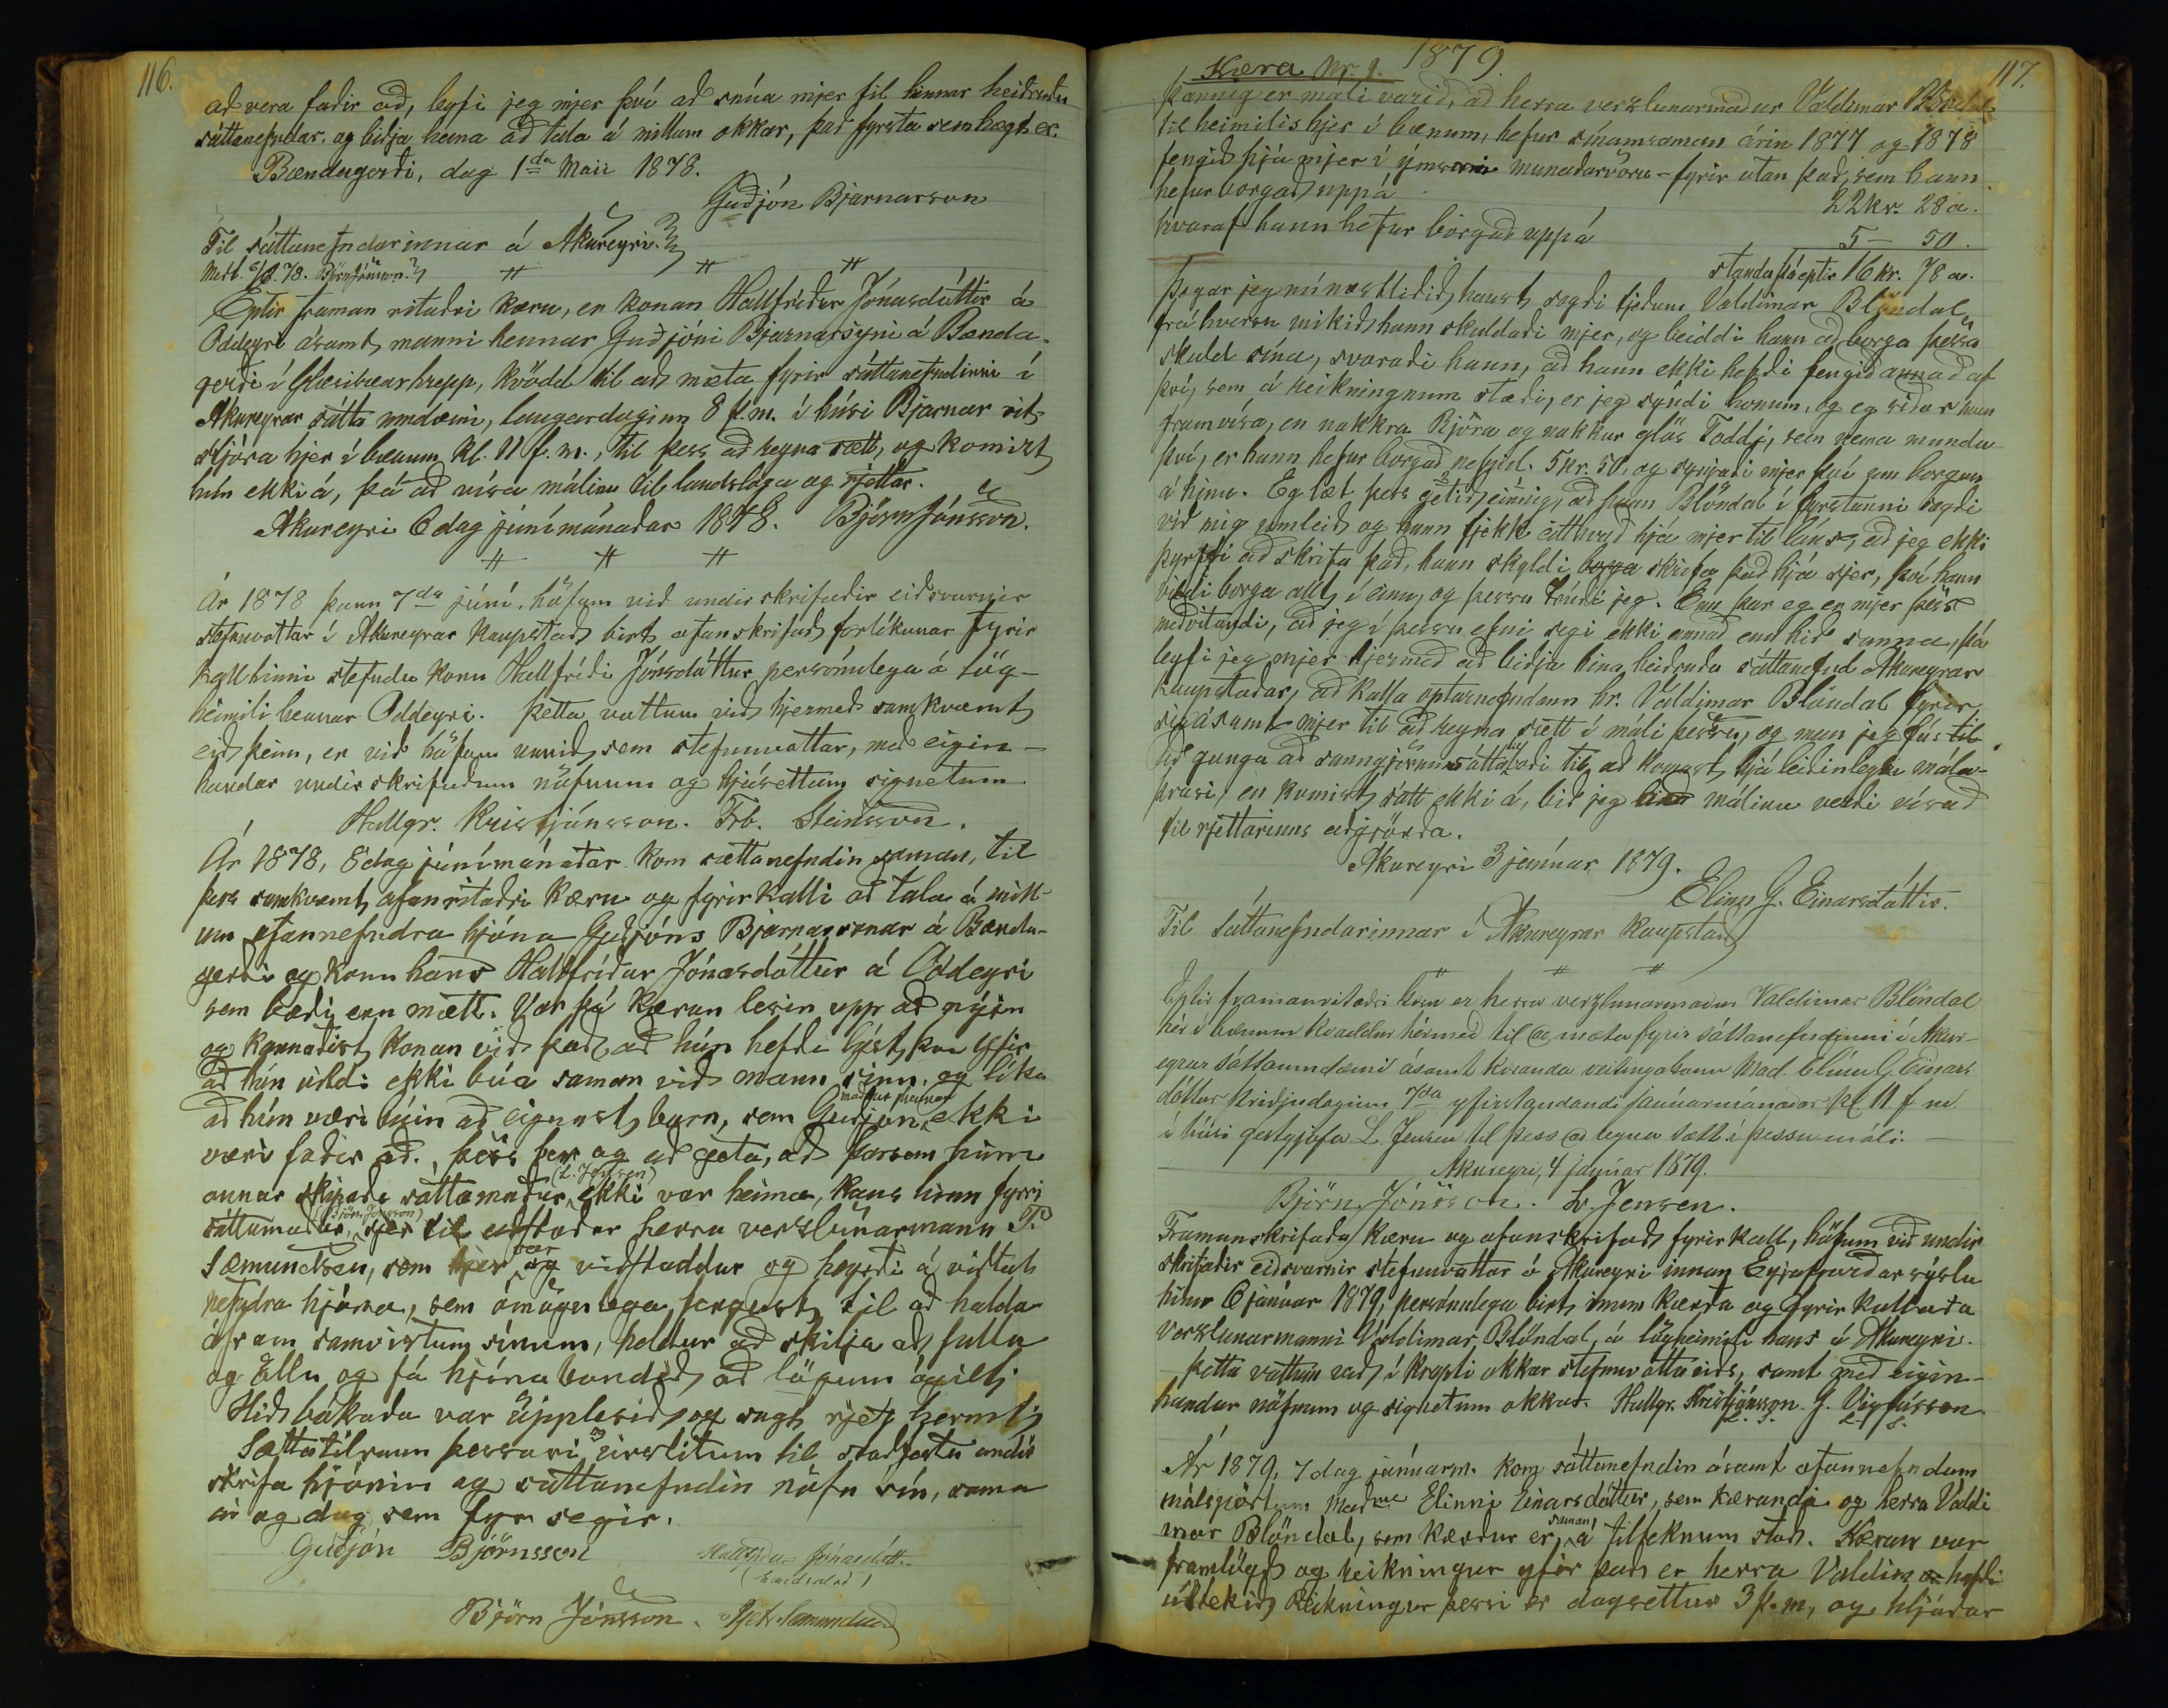 116.
að vera faðir að, leyfi jeg mjer því að snúa mjer til hinnar heiðruðu
sáttanefndar, og biðja hana að tala á millum okkar, það fyrsta sem hægt er.
Bændagerði, dag 1da Maii 1878.
Guðjón Bjarnarson
Til sáttanefndarinnar á Akureyri.
Medt. 6/6. 78. Björn Jónsson.
Eptir framan ritaðri kæru, er konan Hallfríður Jónasdóttir á
Oddeyri ásamt manni hennar Guðjóni Bjarnarsyni á Bænda-
gerði í Glæsibæarhrepp, kvödd til að mæta fyrir sáttanefndinni í
Akureyrar sátta umdæmi, laugardaginn 8 þ.m. í húsi Bjarnar rit-
stjóra hjer í bænum kl. 11 f.m., til þess að reyna sætt, og komizt
hún ekki á, þá að vísa málinu til landslaga og rjettar.
Akureyri 6 dag júnímánaðar 1878. Björn Jónsson.
Ár 1878 þann 7da júní, höfum við undirskrifaðir eiðsvarnir
stefnuvottar í Akureyrar kaupstað birt ofanskrifað forlíkunar fyrir
kall hinni stefndu konu Hallfríði Jónsdóttur persónulega á lög-
heimili hennar Oddeyri. Þetta vottum við hjermeð samkvæmt
eið þeim, er við höfum unnið sem stefnuvottar, með eigin-
handar undirskrifuðum nöfnum og hjásettum signetum.
Hallgr. Kristjánsson. Frb. Steinsson.
Ár 1878, 8 dag júnímánaðar kom sættanefndin saman, til
þess samkvæmt ofanritaðri kæru og fyrirkalli að tala á mill-
um ofannefndra hjóna Guðjóns Bjarnarsonar á Bænda-
gerði og konu hans Hallfríðar Jónasdóttur á Oddeyri
sem bæði eru mætt. Var þá kæran lesin upp að nýju
og kannaðist konan við það, að hún hefði lýst því yfir
að hún vildi ekki búa saman við mann sinn, og líka
að hún væri búin að eignast barn, sem Guðjón maður hennar ekki
væri faðir að. Þess ber og að geta, að þarsem hinn
annar skipaði sáttamaður (L. Jensen) ekki var heima, kaus hinn fyrri
sáttamaður (Björn Jónsson) sjer til aðstoðar herra verzlunarmann P.
Sæmundsen, sem hjer var og viðstaddur og heyrði á viðtal
nefndra hjóna, sem ómögulega fengust til að halda
áfram samvistum sínum, heldur að skilja að fullu
og öllu og fá hjónabandið að lögum ógilt.
Hið bókaða var upplesið og sagt rjett hermt.
Sættatilraun þessari og úrslitum til staðfestu undir
skrifa hjónin og sáttanefndin nöfn sín, sama
ár og dag sem fyr segir.
Guðjón Björnsson Hallfríður Jónasdótt.
(handsalað)
Björn Jónsson. Pjetr Sæmundsen
117.
Kæra Nr. 1. 1879.
Þannig er máli varið, að herra verslunarmaður Valdimar Blöndal
til heimilis hjer í bænum, hefur smámsaman árin 1877 og 1878
fengið hjá mjer í ýmsri munaðarvöru - fyrir utan það, sem hann
hefur borgað uppá 22 kr. 28 a.
hvaraf hann hefur borgað uppá 5 - 50.
standa þá eptir 16 kr. 78 au.
Þegar jeg nú næstliðið haust sagði tjeðum Valdimar Blöndal
frá hversu mikið hann skuldaði mjer, og beiddi hann að borga þessa
skuld sína, svaraði hann, að hann ekki hefði fengið annað af
því, sem á reikningnum stæði, er jeg sýndi honum, og eg síðar mun
framvísa, en nokkra Bjóra og nokkur glös Toddý, sem nema mundu
því, er hann hefur borgað nefnil. 5 kr. 50, og synjaði mjer því um borgun
á hinu. Eg læt þess getið einnig, að hann Blöndal í fyrstunni sagði
við mig umleið og hann fjekk eitthvað hjá mjer til láns, að jeg ekki
þyrfti að skrifa það, hann skyldi borga skrifa það hjá sjer, því hann
vildi borga allt í einu, og þessu trúði jeg. Enn þar eg er mjer þess
meðvitandi, að jeg í þessu efni segi ekki annað enn hið sanna, þá
leyfi jeg mjer hjermeð að biðja hina heiðruðu sáttanefnd Akureyrar
kaupstaðar, að kalla optarnefndann hr. Valdimar Blöndal fyrir
sig ásamt mjer til að reyna sætt í máli þessu, og mun jeg fús til
að ganga að sanngjörnum sáttaboði til að komast hjá leiðinlegu mála-
þrasi, en komist sátt ekki á, bið jeg málinu verði vísað
til rjettarinns aðgjörða.
Akureyri 3 janúar 1879.
Elín G. Einarsdóttir.
Til Sáttanefndarinnar í Akureyrar kaupstað
Eptir framanritaðri kæru er herra verzlunarmaður Valdimar Blöndal
hér í bænum kvaddur hérmeð til að mæta fyrir sáttanefndinni í Akur-
eyrar sáttaumdæmi ásamt kæranda veitingakonu Mad. Elínu G. Einars
dóttur þriðjudaginn 7da yfirstandandi janúarmánaðar kl. 11 f.m.
í húsi gestgjafa L. Jensen til þess að reyna sætt í þessu máli.
Akureyri, 4 janúar 1879.
Björn Jónsson. L. Jensen.
Framanskrifaða kæru og ofanskrifað fyrirkall, höfum við undir
skrifaðir eiðsvarnir stefnuvottar á Akureyri innan Eyjafjarðarsýslu
hinn 6 janúar 1879, persónulega birt innum kærða og fyrirkallaða
verzlunarmanni Valdimar Blöndal, á lögheimili hans á Akureyri.
Þetta vottum við í krapti okkar stefnuvottaeiðs, samt með eigin-
handar nöfnum og signetum okkar. Hallgr. Kristjánsson. J. Vigfússon.
L. S. L. S.
Ár 1879, 7 dag janúarm. kom sáttanefndin ásamt ofannefndum
málspörtum Madme Elinni Einarsdóttur, sem kærandi og herra Valdi
mar Blöndal, sem kærður er, saman á tilteknum stað. Kæran var
framlögð og reikningur yfir það er herra Valdimar hefði
úttekið Reikningur þessi er dagsettur 3 þ.m, og hljóðar